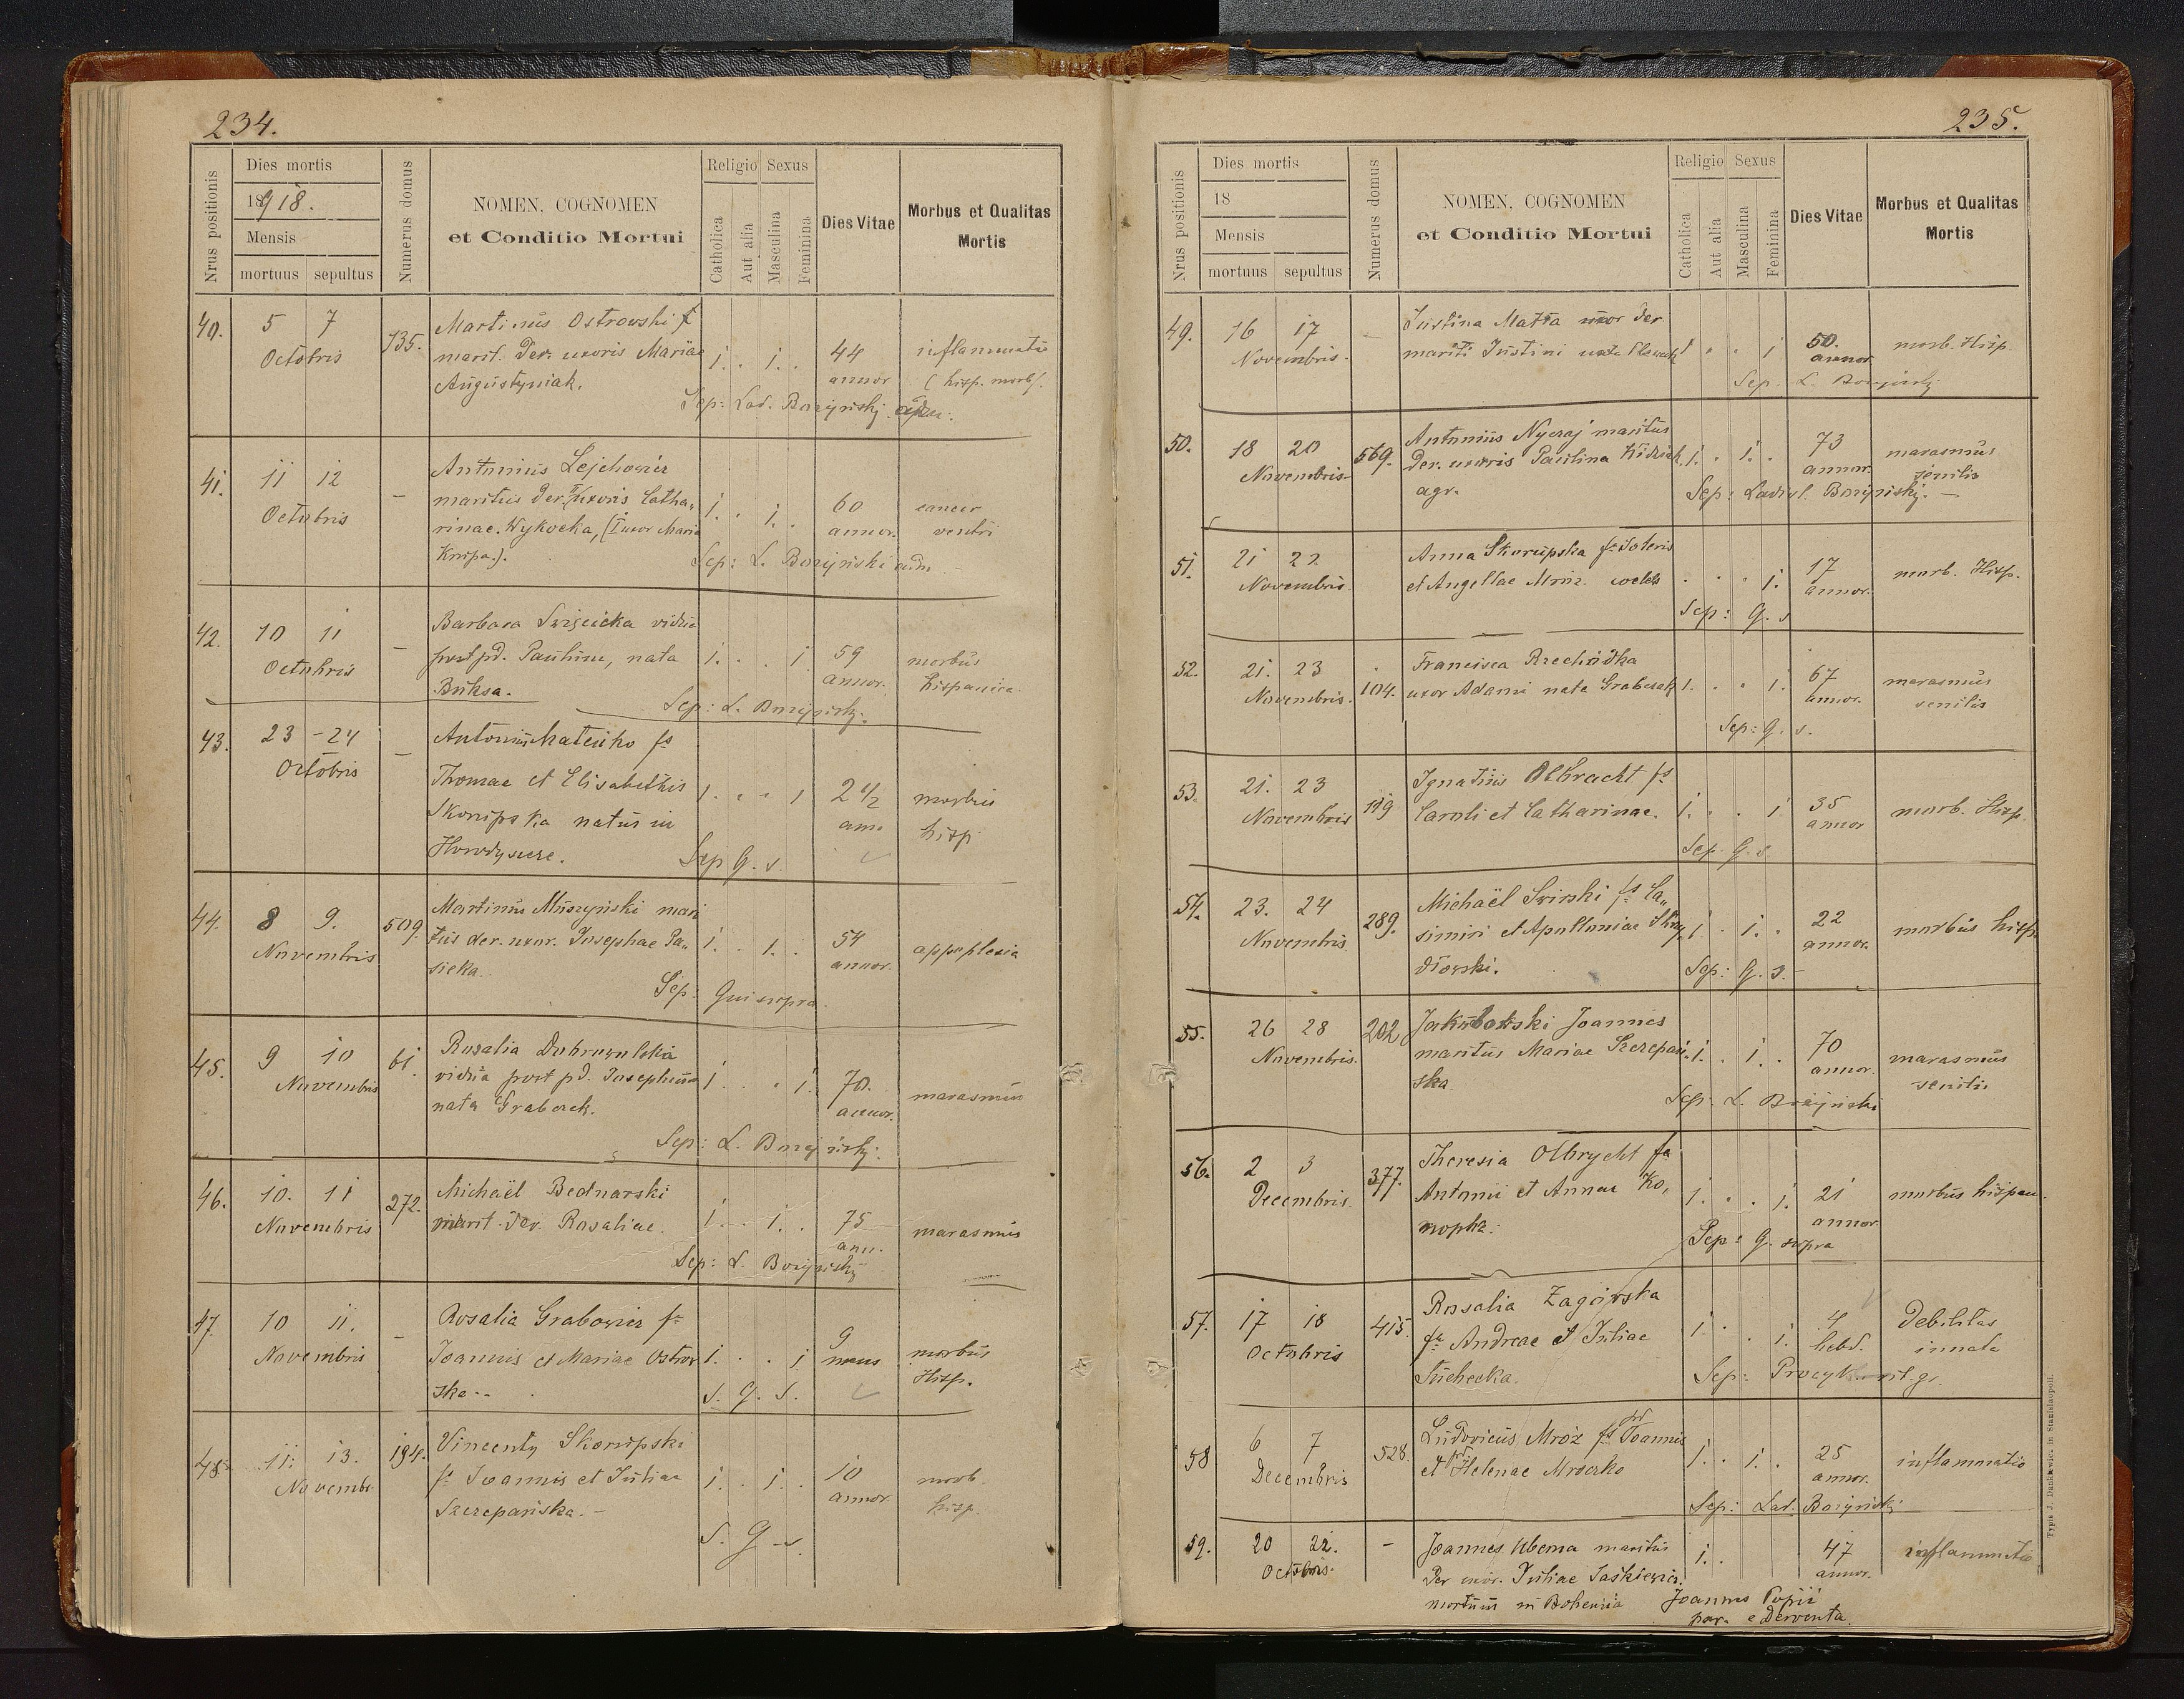 234.
Nrus positionis
Dies mortis
1918.
Mensis
mortuus sepultus
Numerus domus
NOMEN, COGNOMEN
et Conditio Mortui
Religio Sexus
Catholica
Aut alia
Masculina
Feminina
Dies Vitae
Morbus et Qualitas
Mortis
40. 5 7 Octobris 135.
Martinus Ostrowski
marit. der. uxoris Mariae
Augustyniak.
1. . 1. .
44 annor
inflammatio
(hisp. morb).
Sep: Lad. Bożyński
41. 11 12 Octobris –
Antonius Lejchowicz
maritus der. II uxoris Catha„
rinae Wykocka, (I uxor Maria
Knipa.).
1. . 1. .
60 annor.
cancer
ventri
Sep: L. Bożyński adm
42. 10 11 Octobris –
Barbara Swiecicka vidua
post pd. Paulinu, nata
Buksa.
1. . . 1
59 annor.
morbus
hispanica
Sep: L. Bożyński.
43. 23 – 24 Octobris –
Antonius Mateuko fs
Thomae et Elisabethis
Skorupska natus in
Horodyszcze.
1. . . 1
2 1/2 ann
morbus
hisp
Sep G. s.
44. 8 9. Novembris 509.
Martinus Muszyński mari
tus der. uxor. Josephae Pa„
sieka.
1. . 1. .
54 annor.
appoplexia
Sep: Qui supra.
45. 9 10 Novembris 61.
Rozalia Dobrowolska
vidua post pd. Josephum
nata Graborek.
1 . . 1.
70. annor.
marasmus
Sep: L. Bożyński.
46. 10. 11 Novembris 272.
Michaël Bednarski
marit. der. Rosaliae.
1. . 1. .
75 ann.
marasmus
Sep: L. Bożyński
47. 10 11. Novembris –
Rosalia Grabowicz fa
Joannis et Mariae Ostrow
ska..
1. . . 1
9 mens
morbus
Hisp.
S. G. S.
48. 11. 13. Novembr. 194.
Vincenty Skorupski
fs Joannis et Juliae
Szczepańska. –
1. . 1. .
10 annor
morb.
hisp.
S. G. s.
235.
Nrus positionis
Dies mortis
18
Mensis
mortuus sepultus
Numerus domus
NOMEN, COGNOMEN
et Conditio Mortui
Religio Sexus
Catholica
Aut alia
Masculina
Feminina
Dies Vitae
Morbus et Qualitas
Mortis
49. 16 17 Novembris. –
Justina Matla uxor der.
mariti Justini nata
. . 1
50. annor
morb. Hisp.
Sep. L. Bożyński
50. 18 20 Novembris 569.
Antonius Nyczaj maritus
der. uxoris Paulina Kidziak
agr.
1. . 1. .
73 annor.
marasmus
senilis
Sep: Ladisl. Bożyński. –
51. 21 22 Novembris.
Anna Skorupska fa Soteris
et Angellae Mroz. coelebs
. . . 1.
17 annor.
morb. Hisp.
Sep: G. s
52. 21. 23 Novembris. 104.
Francisca Rzechódka
uxor Adami nata Graborek
1. . . 1.
67 annor.
marasmus
senilis
Sep: G. s.
53. 21. 23 Novembris 119
Ignatius Olbracht fs
Caroli et Catharinae.
1. . . 1
35 annor
morb. Hisp.
Sep. G. s
54. 23. 24 Novembris 289.
Michaël Swirski fs Ca„
simiri et Apolloniae
dlowski.
1 . 1. .
22 annor.
morbus hisp.
Sep: G. s. –
55. 26 28 Novembris. 202
Jakubowski Joannes
maritus Mariae Szczepań
ska.
1. . 1. .
70 annor.
marasmus
senilis
Sep: L. Bożyński
56. 2 3 Decembris 377.
Theresia Olbrycht fa
Antonii et Annae Ko„
nopka.
1. . . 1.
21 annor.
morbus hispan.
Sep: G. supra
57. 17 18 Octobris 415.
Rosalia Zagórska
fa Andreae et Juliae
Suchecka.
1. . . 1.
4 hebd.
Debilitas
innata
Sep: Procyk rit. gr.
58 6 7 Decembris 528.
Ludovicus Mroz fs Joannis
et Helenae Mroczko
1. . 1. .
25 annor.
inflammatio
Sep: Lad. Bożyński
59. 20 22. Octobris. –
Joannes Ubema maritus
der uxor. Juliae Jaskiewicz.
mortuus in Bohemia
1. .
47 annor.
inflammatio
Joannes Popii
par. e Derventa.
Typis J. Dankiewicz in Stanislaopoli.